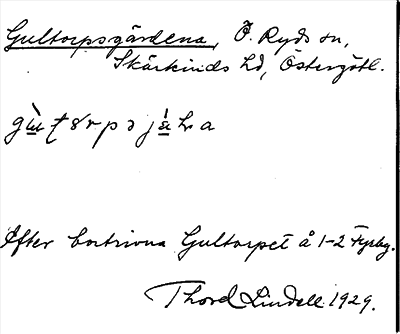 Gultorpsgärdena, Ö. Ryds sn,
Skärkinds hd, Östergötl.
Efter bortrivna Gultorpet å 1-2 Fyrbg.
Thord Lindell 1929.